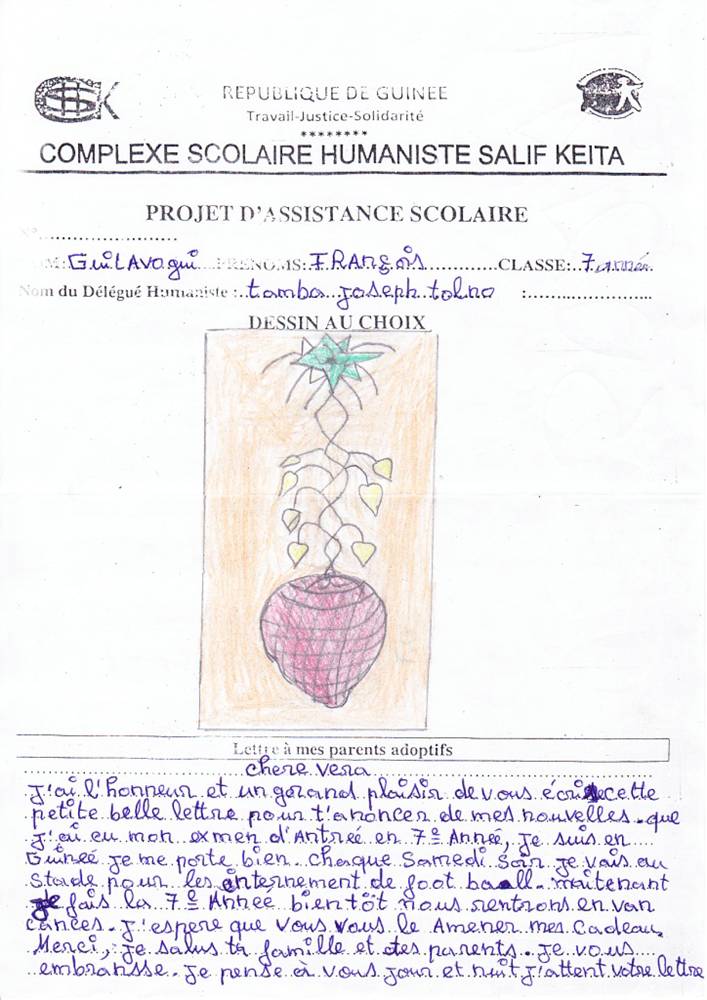 SK
REPUBLIQUE DE GUINEE
Travail-Justice-Solidarité
********
COMPLEXE SCOLAIRE HUMANISTE SALIF KEITA
PROJET D'ASSISTANCE SCOLAIRE
N°....................
NOM:GuiLAVOgui...PRENOMS:FRANÇois............CLASSE:..7 année.
Nom du Délégué Humaniste :..tamba joseph tolno :....................
DESSIN AU CHOIX
Lettre à mes parents adoptifs
chere vera
J'ai l'honneur et un grand plaisir de vous écrire cette
petite belle lettre pour t'anoncer de mes nouvelles. que
j'ai eu mon exmen d'Antreé en 7e Année, je suis en
Guineé je me porte bien. chaque Samedi soir je vais au
Stade pour les enternement de foot baall. maitenant
je fais la 7e Année bientôt nous rentrons en van
cances. J'espere que vous vous le Amener mes cadeau.
Merci, je salus ta famille et des parents. je vous
embransse. je pense à vous jour et nuit j'attent votre lettre